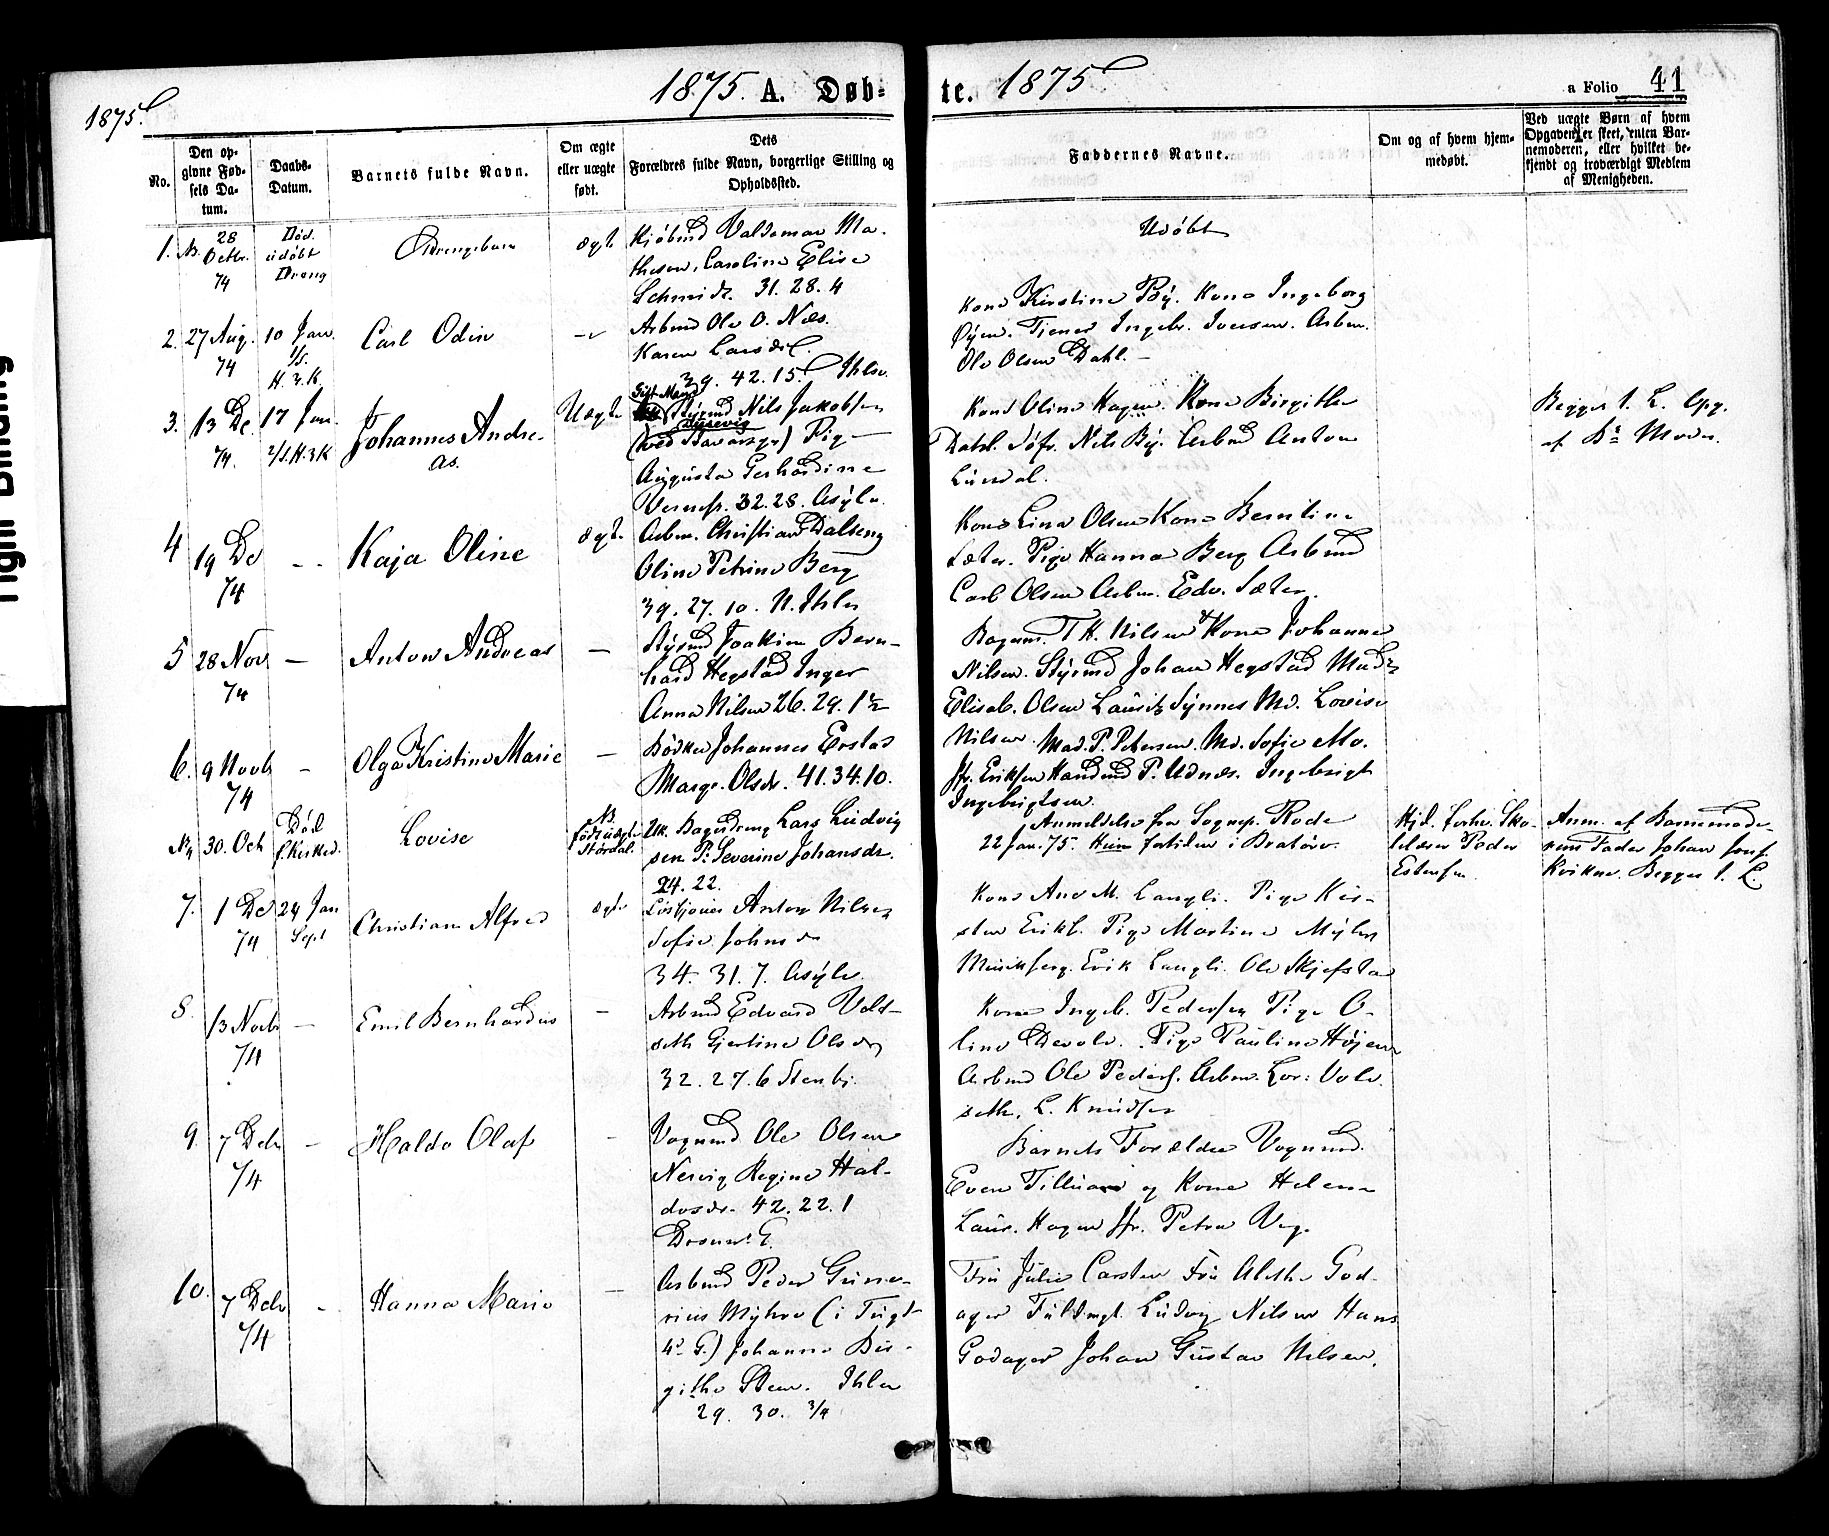 1875.
1875. A. Døb-
te. 1875
a Folio 41
No.
Den op-
givne Fød-
sels Da-
tum.
Daabs-
Datum.
Barnets fulde Navn.
Om ægte
eller uægte
født.
Dets
Forældres fulde Navn, borgerlige Stilling og
Opholdssted.
Faddernes Navne.
Om og af hvem hjem-
medøbt.
Ved uægte Børn af hvem
Opgaven er skeet, enten Bar-
nemoderen, eller hvilket be-
kjendt og troværdigt Medlem
af Menigheden.
1.
28
Octbr.
74
Død.
udøbt
Dreng
Drengebarn
ægte
Kjøbmd Valdemar Ma-
thesen, Caroline Elise
Schmidt. 31. 28. 4
Udöbt
2.
27 Aug.
74
10 Jan.
H. 3. K.
Carl Odin
Arbmd Ole O. Næs.
Karen Larsdt.
39. 42. 15. Ihlen
Kone Kirstine By. Kone Ingeborg
Øyen. Tjener Ingebr. Iversen. Arbm.
Ole Olsen Dahl.
3.
13 De.
74.
17 Jan.
Johannes Andre-
as.
Uægte
Gift Mand
Styrmd Nils Jakobsen
Pige
Augusta Gerhardine
32. 28. Asylv.
Kone Oline Hagen. Kone Birgitte
Dahl. Nils By. Arbmd Anton
Begges 1. L. Opg.
af Ds Moder.
4
19 De
74
Kaja Oline
ægte.
Arbm. Christian Dalseng
Oline Petrine Berg
39. 27. 10. N. Ihlen
Kone Lina Olsen Kone Berntine
Sæter. Pige Hanna Berg Arbmd
Carl Olsen Arbm. Edv. Sæter.
5
28 Nov
74
Anton Andreas
Styrmd Joakim Bern-
hard Hegstad Inger
Anna Nilsen 26. 29. 1 ½
Bagerm. T H. Nilsen & Kone Johanna
Nilsen. Styrmd Johan Hegstad Mads
Elisab. Olsen Lauritz Synnes Md. Lovise
6.
9 Novb
74
Olga Kristine Marie
Bödker Johannes Erstad
Marge. Olsdr. 41. 34. 10.
Nilsen. Mad. P. Petersen. Md. Sofie Mo.
Jfr. Eriksen Handmd P. Udnæs. Ingebrigt
Ingebrigtsen.
30. Oct
Død
Lovise
NB.
født uægte
Stördal.
Uk. Bagerdreng Lars Ludvig
sen P. Severine Johansdr.
24. 22.
Anmeldelse fra Sognep. Rode
22 Jan. 75. Hun fortiden i Bratøre.
Hjd. forhv. Sko-
lelærer Peder
Estensen
Anm. af Barnemode-
rens Fader Johan
Kvikne. Begges 1. L.
7.
1 De
74
24 Jan
Sept
Christian Alfred
ægte
Anton Nilsen
Sofie Johnsdr
34. 31. 7. Asylv.
Kone Ane M. Langli. Pige Kir-
sten Erikf. Pige Martine Myhr
Erik Langli. Ole Skjefstad
8.
13 Novb
74
Emil Bernhardus
Arbmd Edvard Vold-
seth Gjertine Olsdr
32. 27. 6 Stenbj.
Kone Ingeb. Pedersen Pige O-
line Devole. Pige Pauline Højem
Arbmd Ole Peders. Arbm. Lor. Vold-
seth, L. Knudsen
9
7 Decbr
74
Haldo Olaf
Vognmd. Ole Olsen
Nervig Regine Hal-
dosdr. 42. 22. 1
Dronn. G.
Barnets Forældre Vognmd.
Even Tilluan og Kone Helena
Laur. Hagen Jfr. Petra Vig.
10.
7 Decbr
74
Hanna Marie
Arbmd Peder Gune-
rius Myhre (i Tugt-
4de G.) Johanna Bir-
githe Steen. Ihlen
29. 30. ¾
Fru Julie Carsten Fru Alethe God-
ager Fuldmgt. Ludvig Nilsen Hans
Godager Johan Gustav Nilsen.